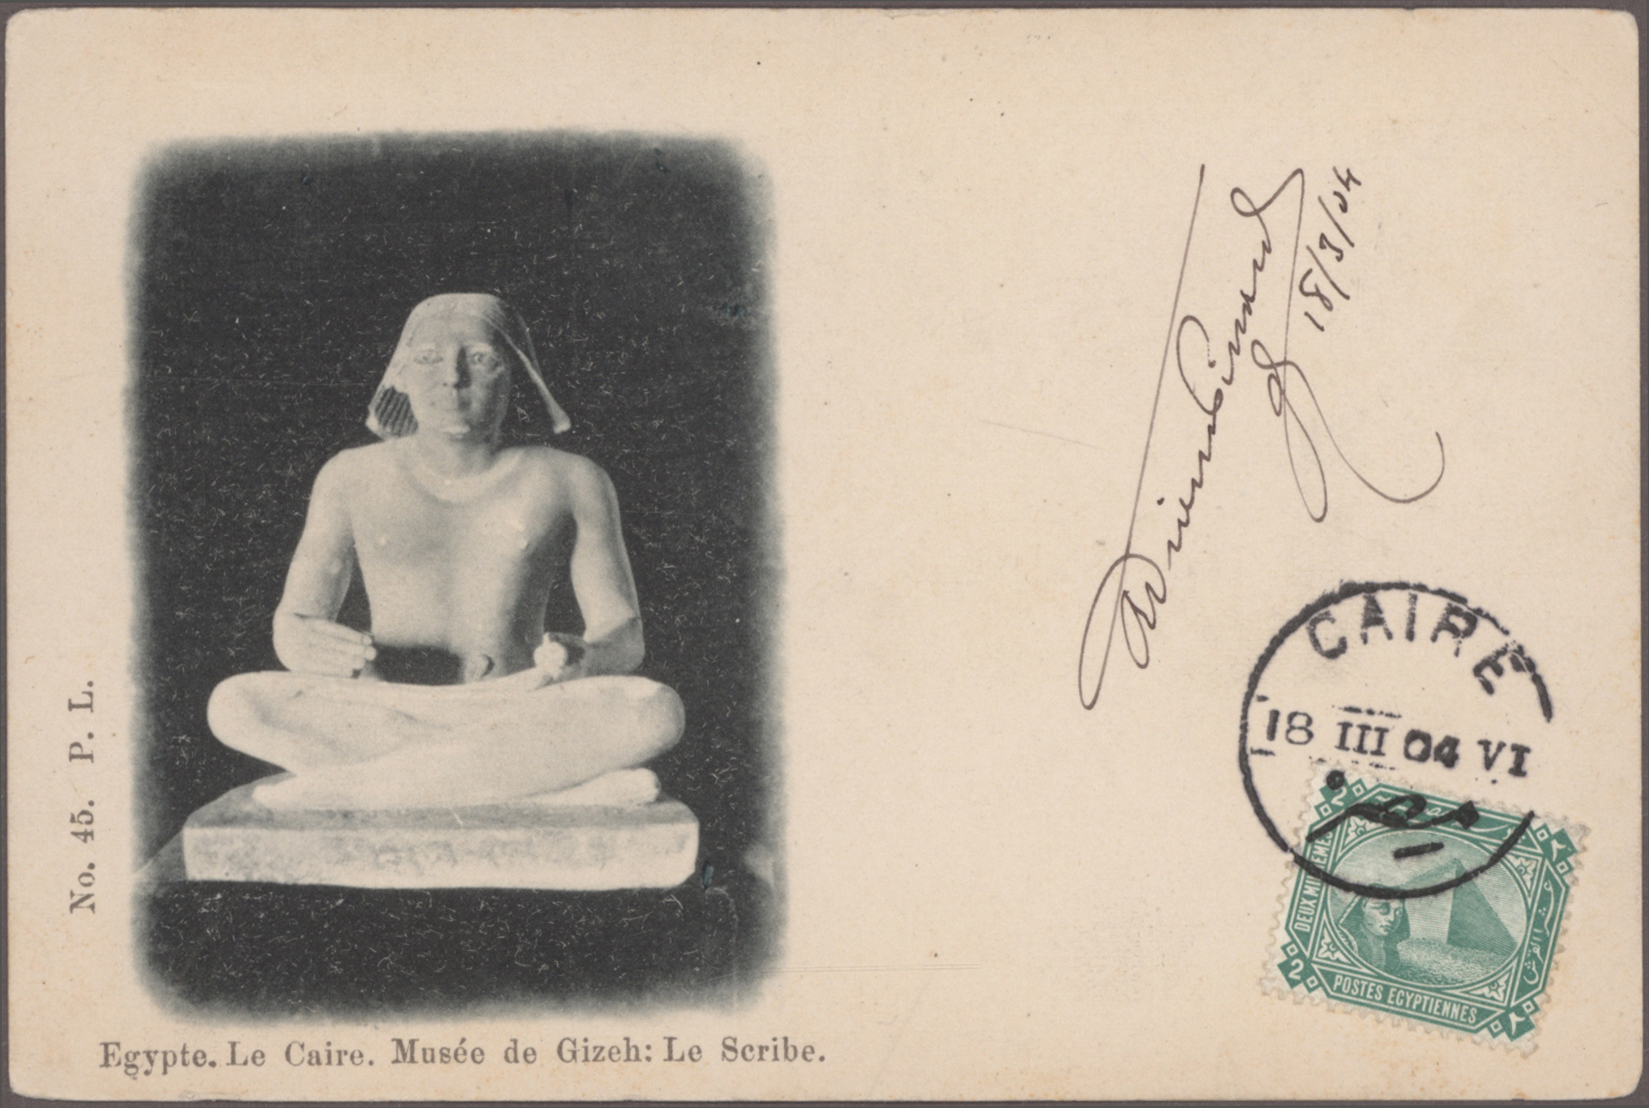 No. 45. P. L.
Egypte. Le Caire. Musée de Gizeh: Le Scribe.
18/3/04
CAIRE
18 III 04 VI
2
DEUX MILLIEMES
2
POSTES EGYPTIENNES
٢
عشر القرش
٢